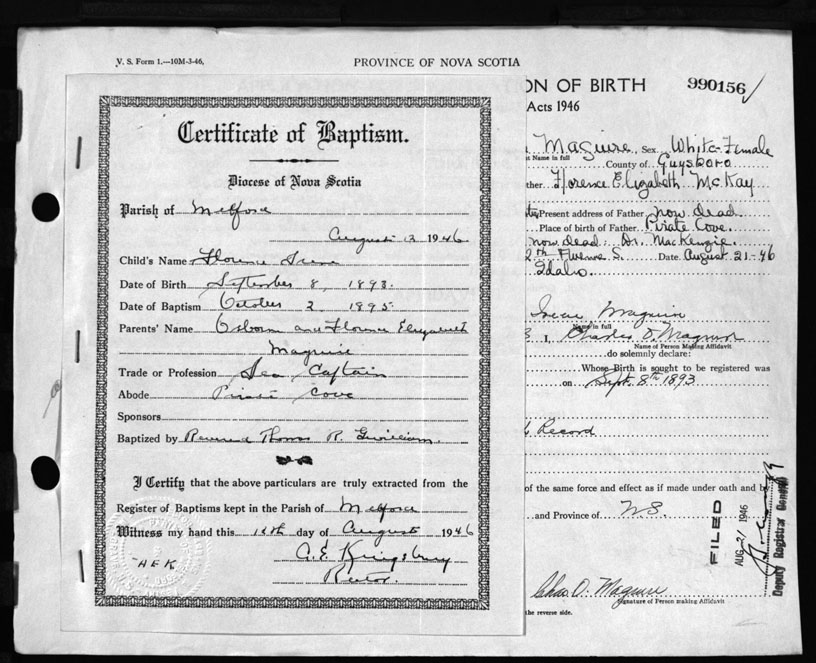 V. S. Form 1.—10M-3-46.
PROVINCE OF NOVA SCOTIA
Certificate of Baptism.
Diocese of Nova Scotia
Parish of Melford
August 12 1946
Child's Name Florence Irene
Date of Birth September 8, 1893.
Date of Baptism October 2 1895
Parents' Name Osborn and Florence Elizabeth
Maguire
Trade or Profession Sea Captain
Abode Pirate Cove
Sponsors
Baptized by Reverend Thomas R. Gwilliam.
I Certify that the above particulars are truly extracted from the
Register of Baptisms kept in the Parish of Melford
Witness my hand this 12th day of August 1946
A.E. Kingsbury
Rector.
AEK
ON OF BIRTH
990156
Acts 1946
Maguire Sex White-Female
Name in full
County of Guysboro
ther Florence Elizabeth McKay
Present address of Father now dead
Place of birth of Father Pirate Cove.
now dead Dr. MacKenzie.
2th Avenue S. Date August 21-46
Idaho.
Irene Maguire
Name in full
I, Charles O. Maguire
Name of Person Making Affidavit
do solemnly declare:
Whose Birth is sought to be registered was
on Sept. 8th 1893
Record
of the same force and effect as if made under oath and by
and Province of N.S.
FILED
AUG 21 1946
Deputy Registrar General
Chas O. Maguire
Signature of Person making Affidavit
the reverse side.